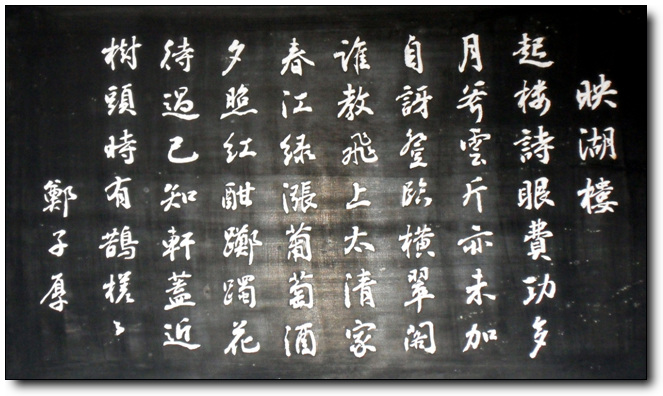 映湖樓
起楼詩眼費功多
月斧雲斤亦未加
自訝登臨橫翠閣
誰教飛上太清家
春江绿漲葡萄酒
夕照红酣躑躅花
待過已知軒蓋近
樹頭時有鵲槎々
鄭子厚